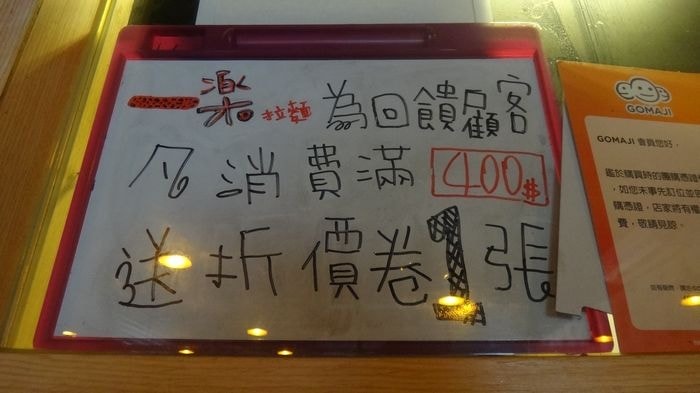 一楽拉麵 為回饋顧客
凡消費滿 400$
送折價卷1張
GOMAJI
GOMAJI 會員您好,
鑑於購買時的團購憑證
,如您未事先訂位並至
購憑證,店家將有權
費,敬請見諒。